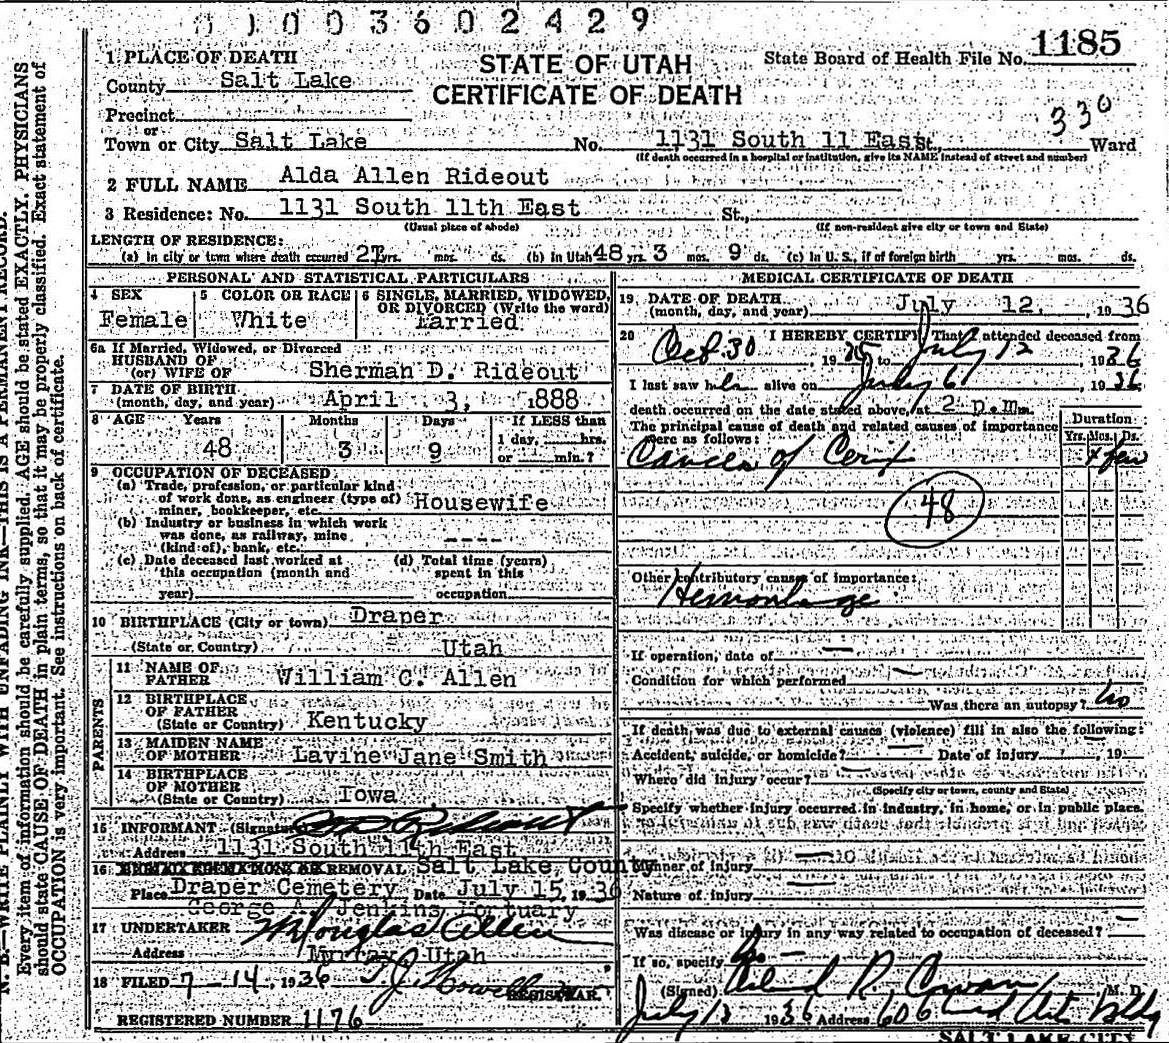 0 1 0 0 3 6 0 2 4 2 9
STATE OF UTAH
CERTIFICATE OF DEATH
State Board of Health File No. 1185
330
1 PLACE OF DEATH
County Salt Lake
Precinct
or
Town or City Salt Lake No. 1131 South 11 East St., Ward
(If death occurred in a hospital or institution, give its NAME instead of street and number)
2 FULL NAME Alda Allen Rideout
3 Residence: No. 1131 South 11th East St.,
(Usual place of abode) (If non-resident give city or town and State)
LENGTH OF RESIDENCE:
(a) In city or town where death occurred yrs. mos. ds. (b) In Utah 48 yrs. 3 mos. 9 ds. (c) In U. S., if of foreign birth yrs. mos. ds.
PERSONAL AND STATISTICAL PARTICULARS
4 SEX Female
5 COLOR OR RACE White
6 SINGLE, MARRIED, WIDOWED, OR DIVORCED (Write the word) Married
6a If Married, Widowed, or Divorced
HUSBAND OF
(or) WIFE OF Sherman D. Rideout
7 DATE OF BIRTH
(month, day, and year) April 3, 1888
8 AGE Years Months Days If LESS than
48 3 9 1 day, hrs.
or min.?
9 OCCUPATION OF DECEASED
(a) Trade, profession, or particular kind
of work done, as engineer (type of)
miner, bookkeeper, etc. Housewife
(b) Industry or business in which work
was done, as railway, mine
(kind of), bank, etc. ----
(c) Date deceased last worked at
this occupation (month and
year)
(d) Total time (years)
spent in this
occupation
10 BIRTHPLACE (City or town) Draper
(State or Country) Utah
PARENTS
11 NAME OF
FATHER William C. Allen
12 BIRTHPLACE
OF FATHER
(State or Country) Kentucky
13 MAIDEN NAME
OF MOTHER Lavine Jane Smith
14 BIRTHPLACE
OF MOTHER
(State or Country) Iowa
15 INFORMANT (Signature) S D Rideout
Address 1131 South 11th East
16 BURIAL CREMATION OR REMOVAL Salt Lake County
Place Draper Cemetery Date July 15, 1936
George A. Jenkins Mortuary
17 UNDERTAKER W Douglas Allen
Address Murray Utah
18 FILED 7-14, 1936 T. J. Howells
REGISTRAR.
REGISTERED NUMBER 1176
MEDICAL CERTIFICATE OF DEATH
19 DATE OF DEATH
(month, day, and year) July 12, 1936
20 I HEREBY CERTIFY, That I attended deceased from
Oct 30, 19 to July 12, 1936
I last saw her alive on July 6, 1936
death occurred on the date stated above, at 2 p.m.
The principal cause of death and related causes of importance
were as follows:
Duration
Yrs. Mos. Ds.
Cancer of Cervix
48
Other contributory causes of importance:
Hemorrhage
If operation, date of —
Condition for which performed —
Was there an autopsy? no
If death was due to external causes (violence) fill in also the following:
Accident, suicide, or homicide? — Date of injury , 19
Where did injury occur? —
(Specify city or town, county and State)
Specify whether injury occurred in industry, in home, or in public place.
Manner of injury —
Nature of injury —
Was disease or injury in any way related to occupation of deceased? —
If so, specify no —
(Signed) Leland R. Cowan M. D.
July 13 1936 Address 606 Med Arts Bldg
SALT LAKE CITY
N. B.—WRITE PLAINLY WITH UNFADING INK—THIS IS A PERMANENT RECORD.
Every item of information should be carefully supplied. AGE should be stated EXACTLY. PHYSICIANS
should state CAUSE OF DEATH in plain terms, so that it may be properly classified. Exact statement of
OCCUPATION is very important. See instructions on back of certificate.